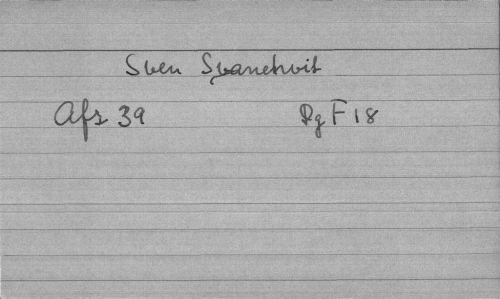 Sven Svanehvit
Afs 39 Rg F 18